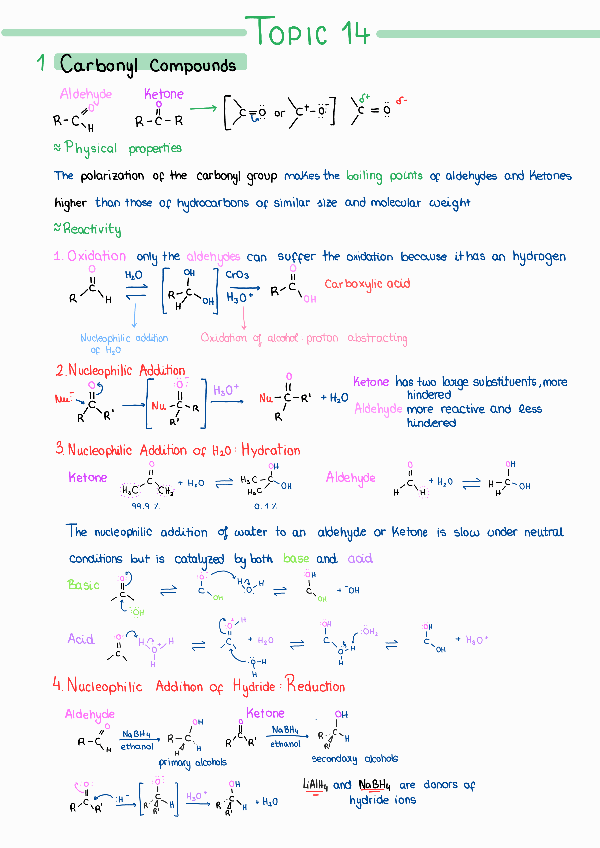 TOPIC 14
1 Carbonyl Compounds
Aldehyde Ketone
R-C O H R-C-R O [ C=O or C+-O- ] C=O δ+ δ-
≈Physical properties
The polarization of the carbonyl group makes the boiling points of aldehydes and ketones
higher than those of hydrocarbons of similar size and molecular weight
≈Reactivity
1. Oxidation only the aldehydes can suffer the oxidation because it has an hydrogen
O H₂O OH CrO₃ O Carboxylic acid
R C H ⇌ [ R-C-OH H ] H₃O⁺ R C OH
Nucleophilic addition Oxidation of alcohol: proton abstracting
of H₂O
2. Nucleophilic Addition
Nu:⁻ O C R R' → [ :O:⁻ Nu C R R' ] H₃O⁺ → Nu-C-R' O R + H₂O
Ketone has two large substituents, more
hindered
Aldehyde more reactive and less
hindered
3. Nucleophilic Addition of H₂O: Hydration
Ketone O H₃C C CH₃ + H₂O ⇌ OH H₃C-C-OH H₃C Aldehyde O H C H + H₂O ⇌ OH H-C-OH H
99.9 % 0.1 %
The nucleophilic addition of water to an aldehyde or Ketone is slow under neutral
conditions but is catalyzed by both base and acid
Basic O C :OH ⇌ :O: C OH H O H ⇌ OH C OH + ⁻OH
Acid :O: C H O⁺ H H ⇌ O⁺ H C + H₂O :O-H H ⇌ :OH C O⁺ H H :OH₂ ⇌ OH C OH + H₃O⁺
4. Nucleophilic Addition of Hydride: Reduction
Aldehyde Ketone
R-C O H NaBH₄ ethanol → OH R-C H H O R C R' NaBH₄ ethanol → OH R C H R'
primary alcohols secondary alcohols
:O: R C R' :H⁻ → [ :O:⁻ R C H R' ] H₃O⁺ → OH R C H R' + H₂O
LiAlH₄ and NaBH₄ are donors of
hydride ions